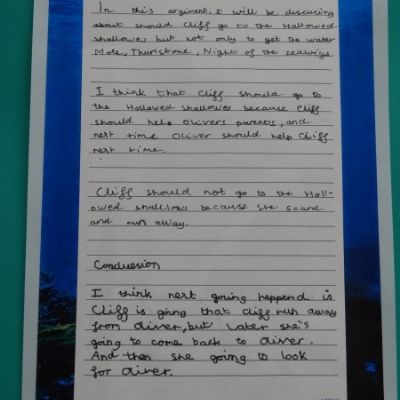 In this argument, I will be discussing
about should Cliff go to the Hallowed
shallows but not only to get the water
Mole, Thurlstone, Night of the seawigs.
I think that Cliff should go to
the Hollowed shallows because Cliff
should help Olivers parents, and
next time Oliver should help Cliff
next time.
Cliff should not go to the Hall-
owed shallows because she scard
and run away.
Conclusion
I think next going happend is
Cliff is going that cliff run away
from oliver, but later she's
going to come back to oliver.
And then she going to look
for oliver.